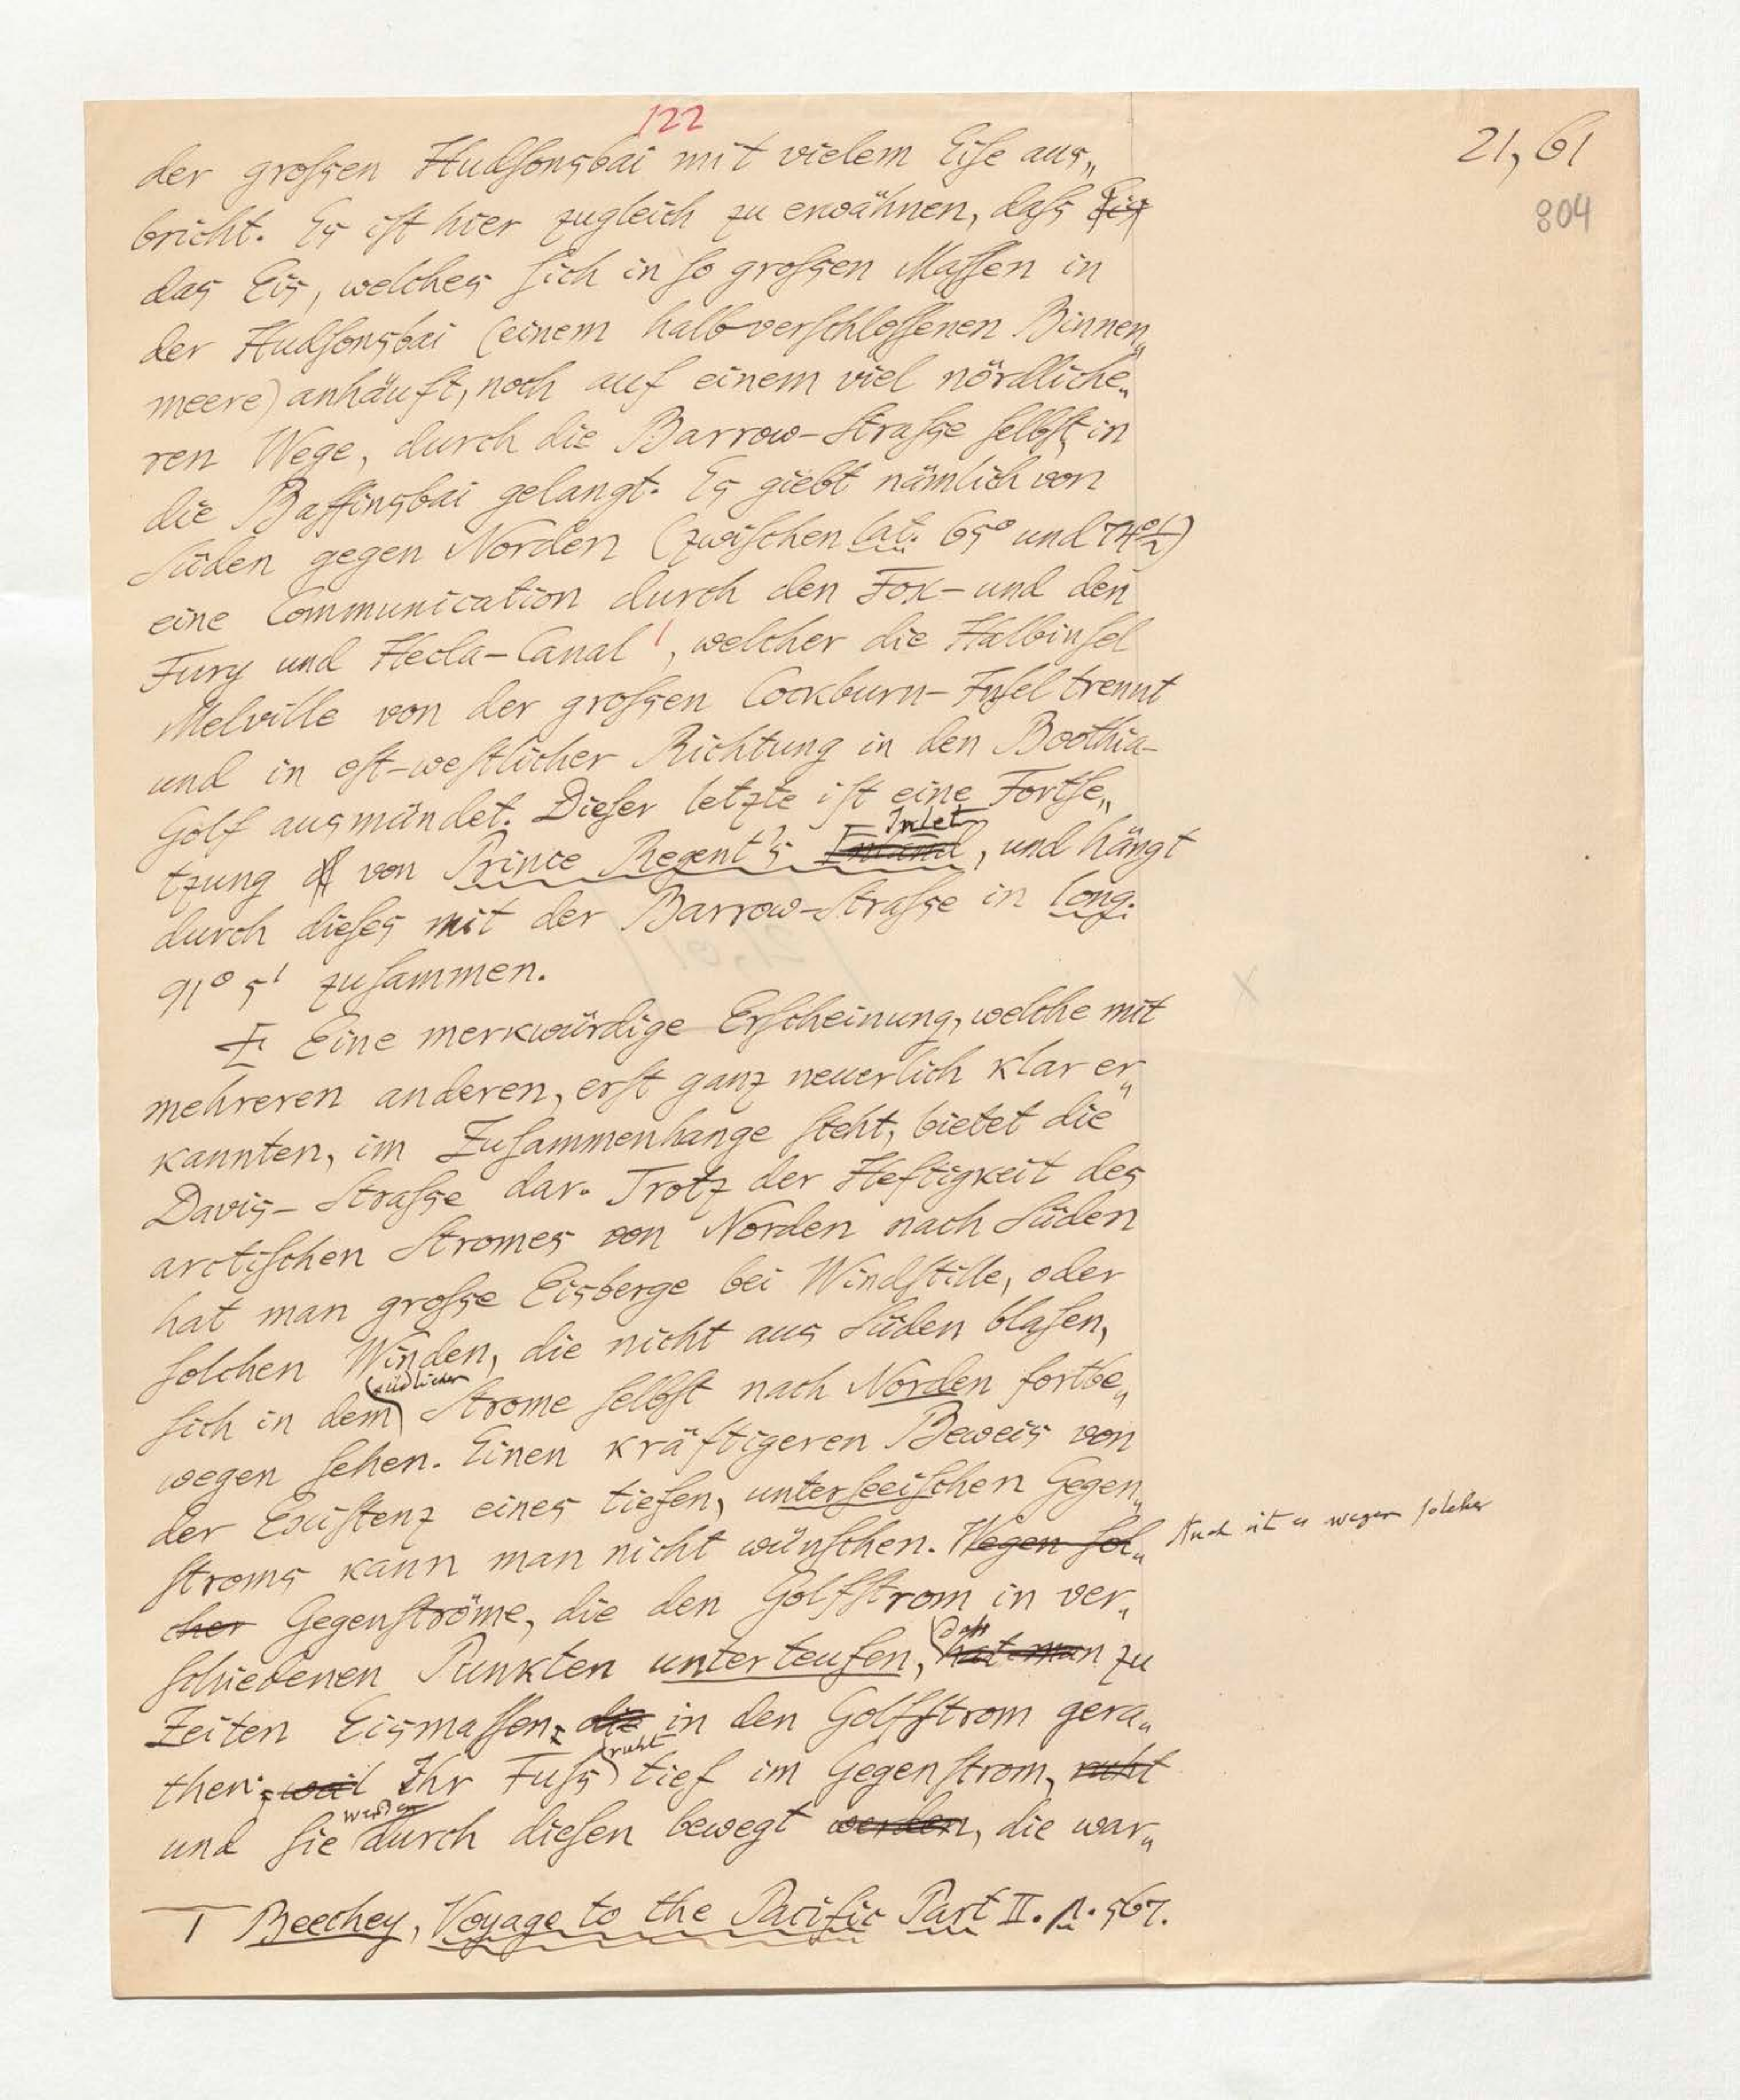 122
21, 61
804
der großen Hudsonsbai mit vielem Eise aus„
bricht. Es ist hier zugleich zu erwähnen, daß
das Eis, welches sich in so großen Massen in
der Hudsonsbai (einem halbverschlossenen Binnen„
meere) anhäuft, noch auf einem viel nördliche„
ren Wege, durch die Barrow-Straße selbst, in
die Baffinsbai gelangt. Es giebt nämlich von
Süden gegen Norden (zwischen lat. 65° und 74°½)
eine Communication durch den Fox- und den
Fury und Hecla-Canal ', welcher die Halbinsel
Melville von der großen Cockburn-Insel trennt
und in ost-westlicher Richtung in den Boothia-
Golf ausmündet. Dieser letzte ist eine Fortse„
tzung von Prince Regent's Inlet, und hängt
durch dieses mit der Barrow-Straße in long.
91° 5' zusammen.
Eine merkwürdige Erscheinung, welche mit
mehreren anderen, erst ganz neuerlich klar er„
kannten, im Zusammenhange steht, bietet die
Davis-Straße dar. Trotz der Heftigkeit des
arctischen Stromes von Norden nach Süden
hat man große Eisberge bei Windstille, oder
solchen Winden, die nicht aus Süden blasen,
sich in dem südlichen Strome selbst nach Norden fortbe„
wegen sehen. Einen kräftigeren Beweis von
der Existenz eines tiefen, unterseeischen Gegen„
stroms kann man nicht wünschen. Wegen sol„ Auch ist es wegen solcher
cher Gegenströme, die den Golfstrom in ver„
schiedenen Punkten unterteufen, daß hat man zu
Zeiten Eismassen, die in den Golfstrom gera„
then; weil Ihr Fuß ruht tief im Gegenstrom, ruht
und sie werden durch diesen bewegt werden, die war„
1 Beechey, Voyage to the Pacific Part II. p. 567.